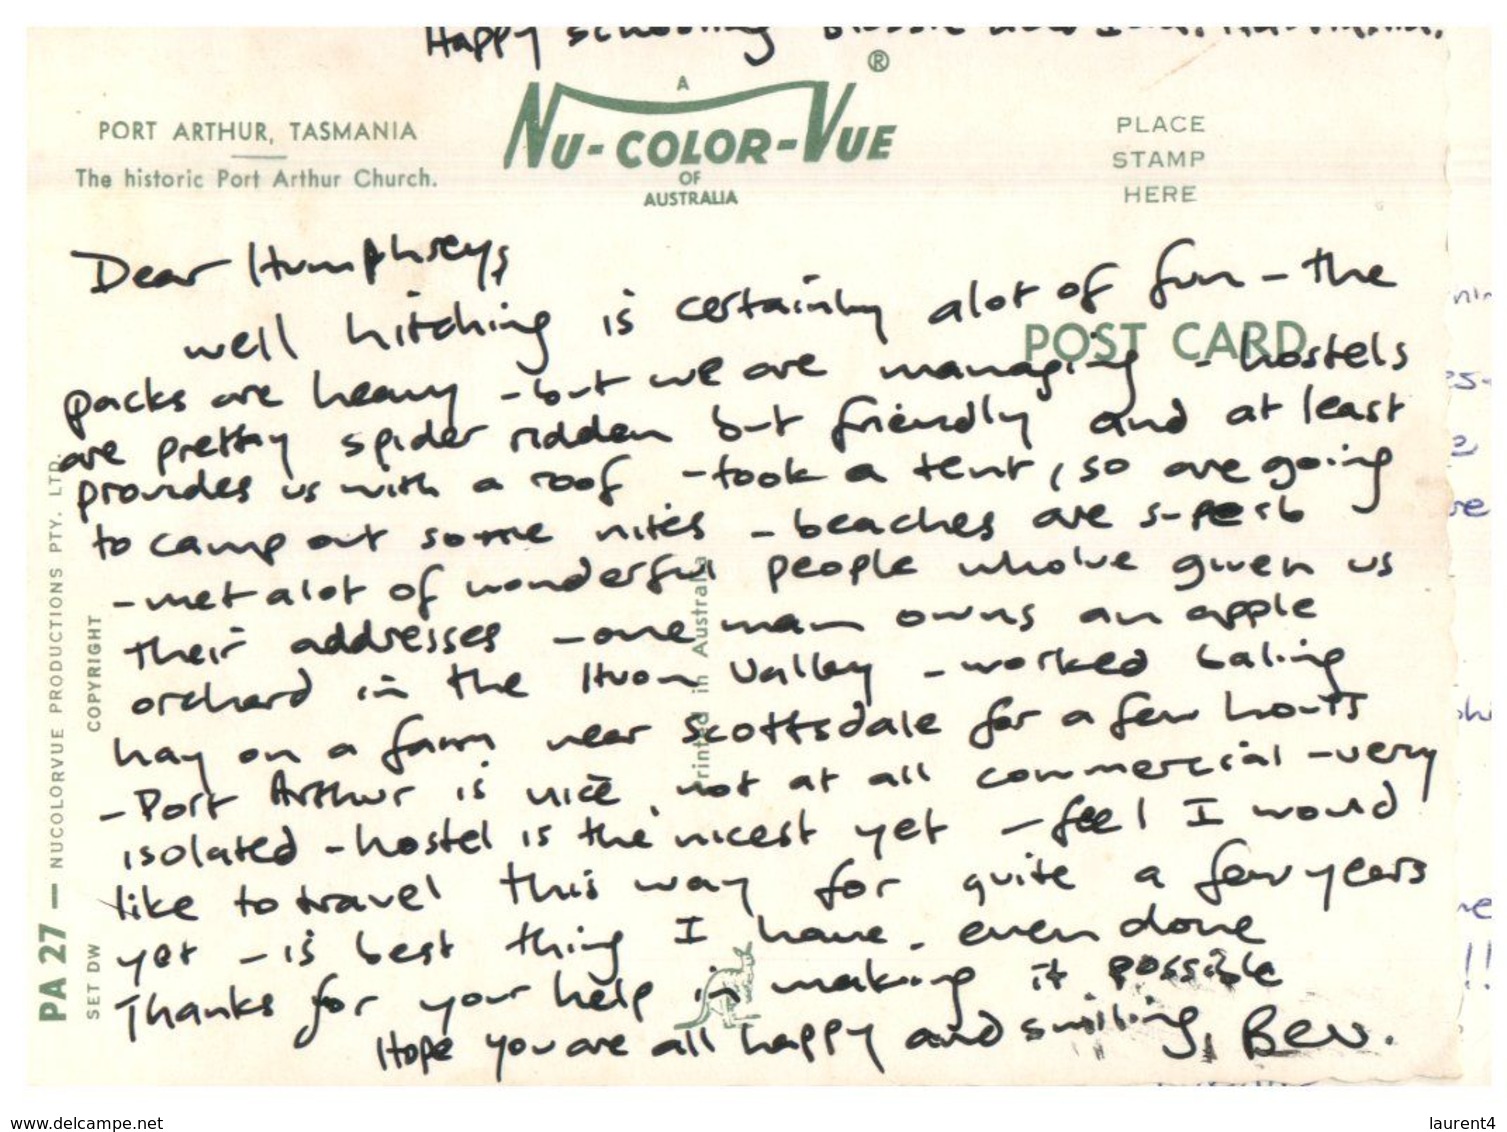 Happy schooling
A
NU-COLOR-VUE ®
OF
AUSTRALIA
PORT ARTHUR, TASMANIA
The historic Port Arthur Church.
PLACE
STAMP
HERE
POST CARD
Dear Humphreys,
well hitching is certainly alot of fun – the
packs are heavy – but we are managing – hostels
are pretty spider ridden but friendly and at least
provides us with a roof – took a tent, so are going
to camp out some nites – beaches are superb
– met alot of wonderful people whohve given us
their addresses – one man owns an apple
orchard in the Huon Valley – worked baling
hay on a farm near Scottsdale for a few hours
– Port Arthur is nice, not at all commercial – very
isolated – hostel is the nicest yet – feel I would
like to travel this way for quite a few years
yet – is best thing I have even done
Thanks for your help in making it possible
Hope you are all happy and smiling, Bev.
PA 27 — NUCOLORVUE PRODUCTIONS PTY. LTD.
SET DW COPYRIGHT
Printed in Australia
!!
www.delcampe.net
laurent4